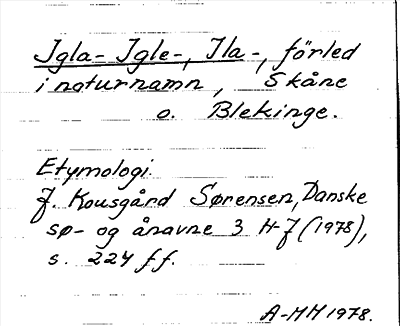 Igla- Igle-, Ila-, förled
i naturnamn, Skåne
o. Blekinge.
Etymologi.
J. Kousgård Sørensen, Danske
sø- og ånavne 3 H-J (1978),
s. 224 ff.
A-MH 1978.